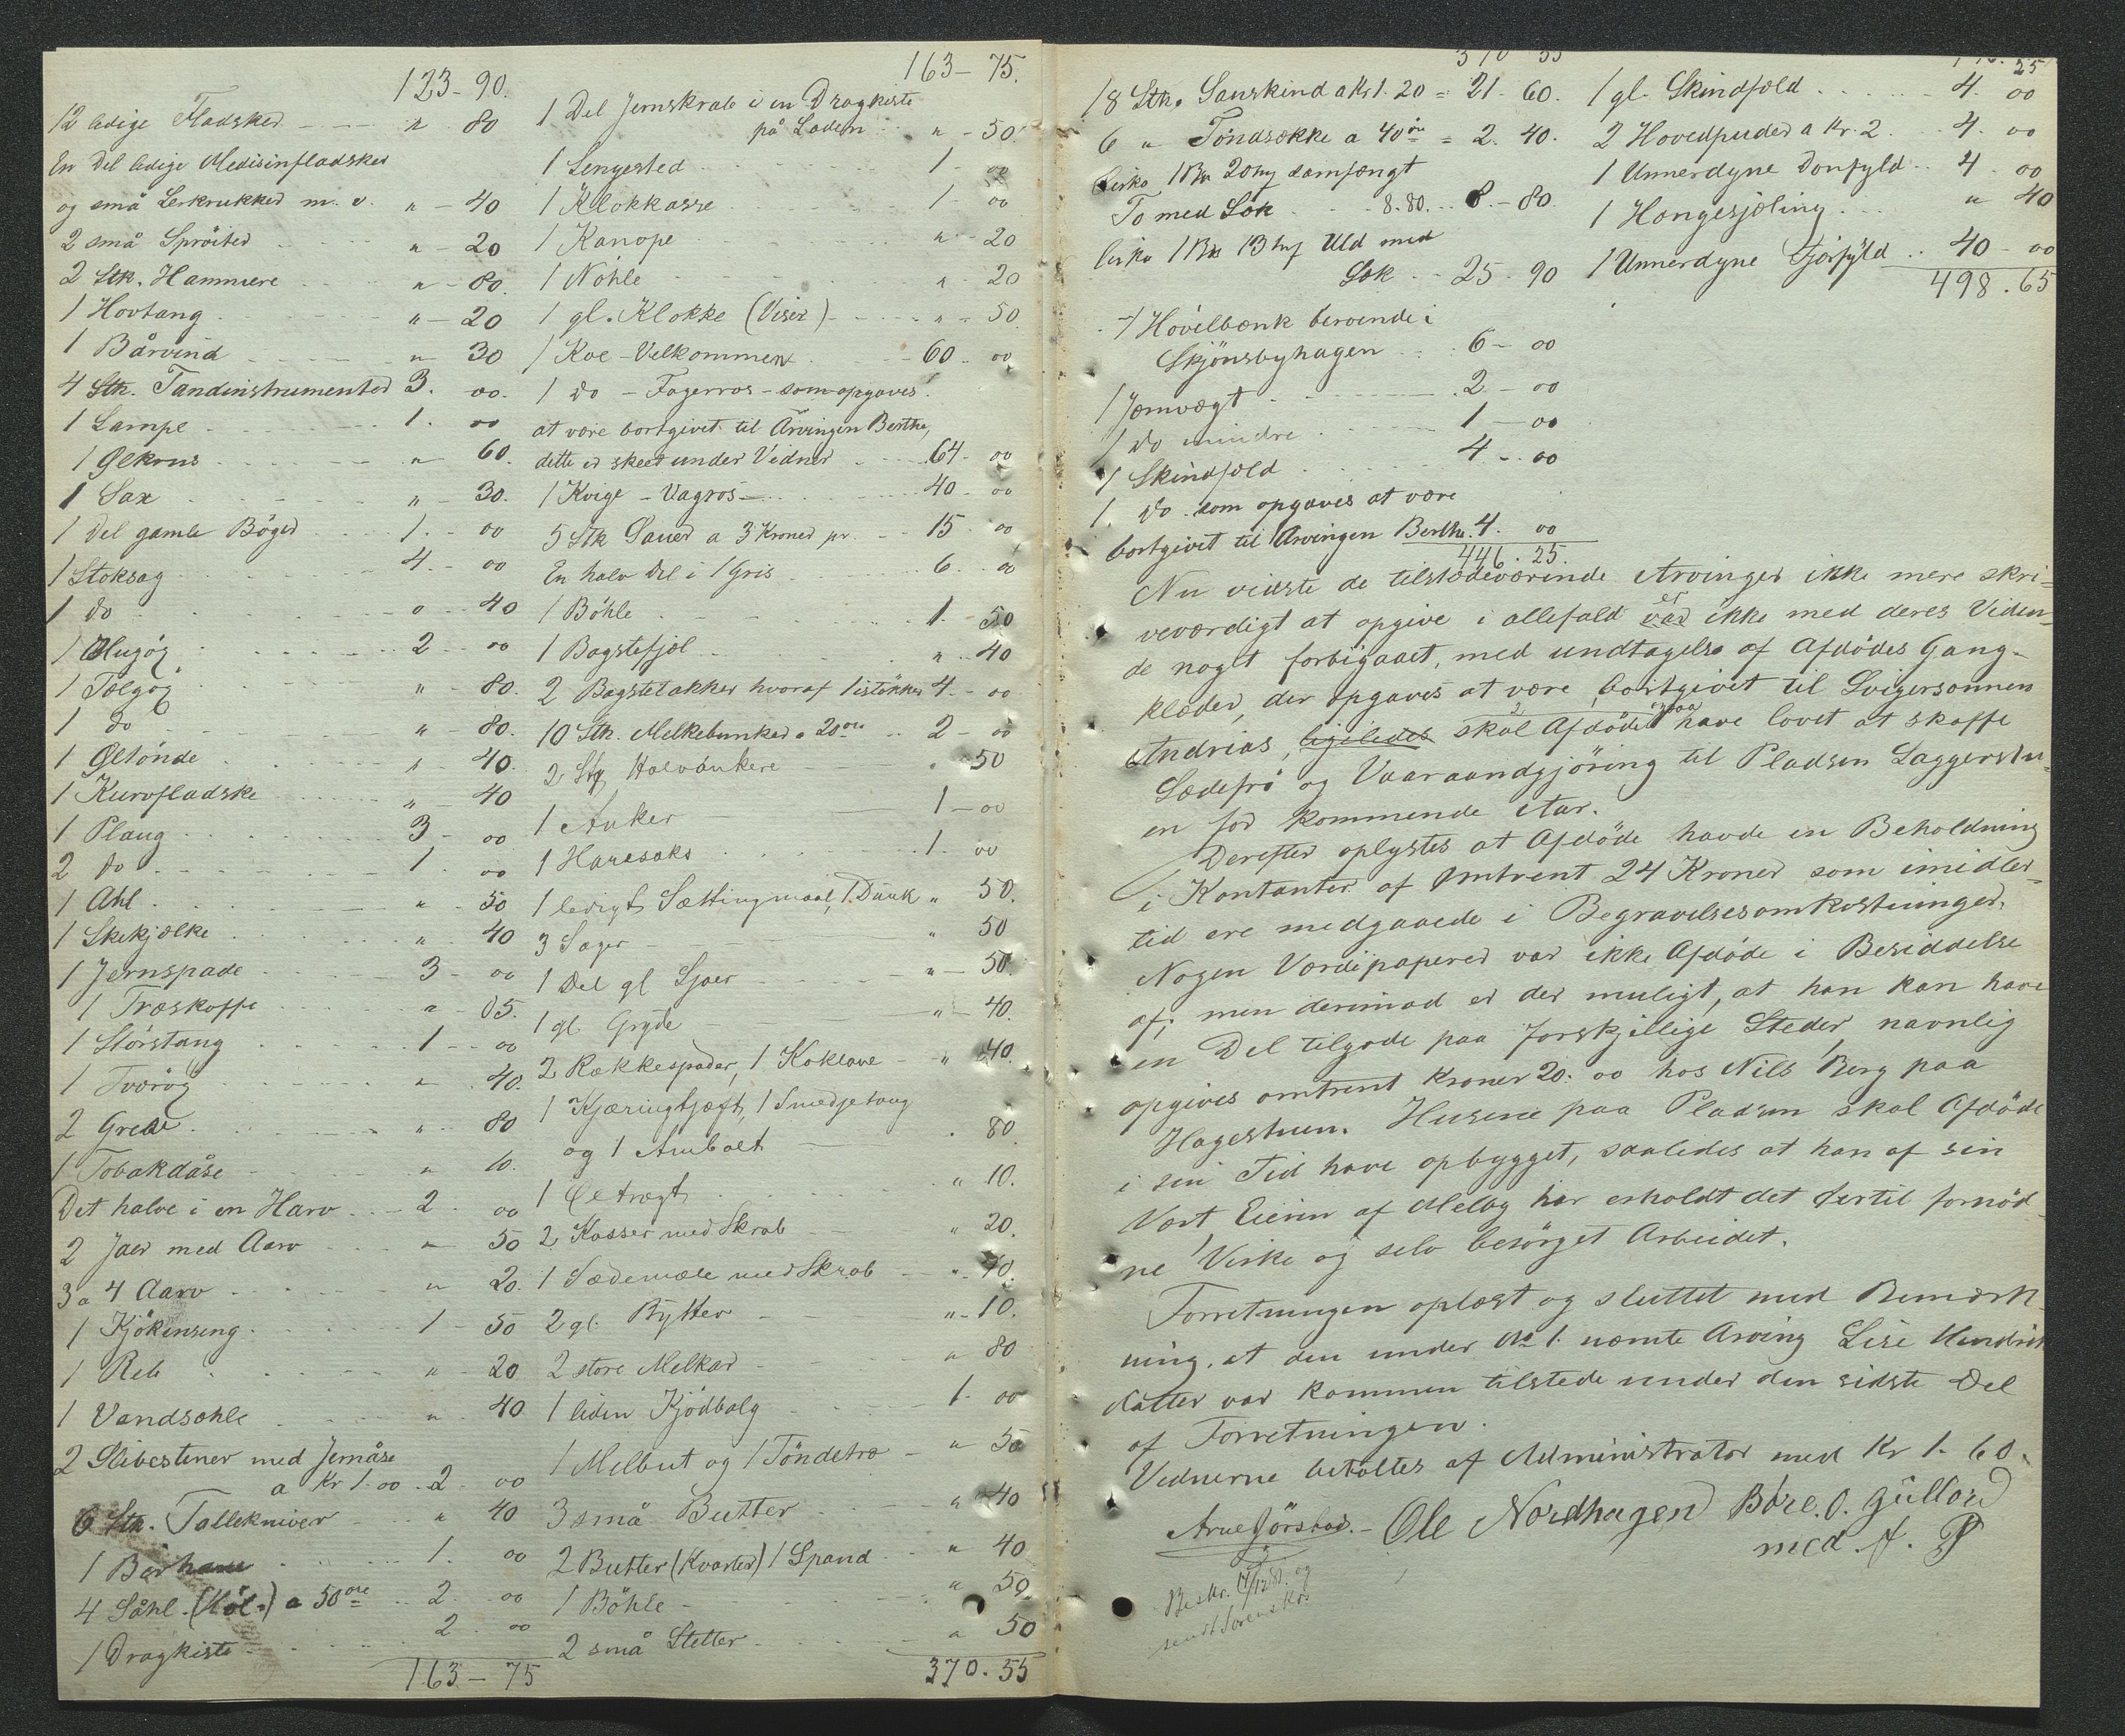 123-90.
12 ledige Fladsker " - 80
En Del ledige Medisinfladsker
og små Lerkrukker m. v. " - 40
2 små Spröiter " - 20
2 Stk. Hammere " - 80.
1 Hovtang " - 20
1 Bårvind " - 30
4 Stk. Tandinstrumenter 3. 00.
1 Lampe 1. 00
1 Ølkrus " 60.
1 Sax " - 30.
1 Del gamle Böger 1. - 00
1 Stoksag 4. - 00
1 do " - 40
1 Hugög 2 - 00
1 Tælgög " - 80.
1 do " - 80.
1 Øltönde " - 40.
1 Kurvfladske " - 40
1 Plaug 3 - 00
2 do 1. 00
1 Ahl " - 50
1 Skikjælke " 40
1 Jernspade 3 - 00
1 Træskoffe " - 05.
1 Störstang 1 - 00
1 Tværög " - 40.
2 Greve " - 80
1 Tobakdåse " 10.
Det halve i en Harv 2. 00
2 Jaer med Aarv " 50
3 a 4 Aarv " 20.
1 Kjökenseng 1 - 50
1 Reb " - 20
1 Vandsæhle " 40
2 Slibestener med Jernåse
a Kr 1.00 2 - 00
6 Stk. Talleknive " 40
1 Bor 1. 00
4 Såhl. (Köl.) a 50 øre 2. 00
1 Dragkiste 2. 00
163 - 75
163 - 75.
1 Del Jernskrab i en Dragkiste
på Laden " - 50.
1 Sengested 1 - 00
1 Klokkasse 1 - 00
1 Kanope " - 20
1 Nöhle " - 20
1 gl. Klokke (Viser) " - 50.
1 Koe - Velkommen 60 - 00
1 do - Fagerros - som opgaves
at være bortgivet til Arvingen Berthe,
dette er skeet under Vidner 64 - 00
1 Kvige - Vagros - 40 - 00
5 Stk Sauer a 3 Kroner pr. 15 - 00
En halv Del i 1 Gris 6. 00
1 Böhle 1. 50
1 Bagstefjöl " - 40
2 Bagstetakker hvoraf 1 istökker 4. - 00
10 Stk. Melkebunker a 20 øre 2 - 00
2 Stk Halvankere " 50
1 Anker 1 - 00
1 Haresaks 1. 00
1 ledigt Sættingmaal, 1 Dunk " 50.
3 Sager " 50
1 Del gl Ljaer " - 50.
1 gl Gryde " - 40.
2 Rækkespader, 1 Koklave " 40.
1 Kjæringkjæft, 1 Smedjetang
og 1 Ambolt " 80.
1 Öltragt " 10.
2 Kasser med Skrab " 20.
1 Sædemæle med Skrab " 40.
2 gl. Bytter " - 10.
2 store Melkar " 80
1 liden Kjödbalg 1. 00
1 Melbut og 1 Töndetræ " 50
3 små Butter " 40
2 Butter (Kvarter) 1 Spand " 40
1 Böhle " 50
2 små Stetter " 50
370. 55
370 55
18 Stk. Sauskind a Kr 1. 20 = 21. 60.
6 " Töndsække a 40 øre = 2. 40.
Cirka 1 Bpd 20 Mrk samfængt
To med Sæk 8.80. 8. - 80.
Cirka 1 Bpd 13 Mrk Uld med
Sæk 25. 90
1 Hövelbænk beroende i
Skjönsbyhagen 6 - 00
1 Jernvægt 2 - 00
1 do mindre 1 - 00
1 Skindfæld 4 - 00
1. do som opgaves at være
bortgivet til Arvingen Berthe. 4. 00
446. 25.
25
1 gl. Skindfæld 4. 00
2 Hovedpuder a Kr. 2. 4. 00
1 Unnerdyne Donfyld 4. 00
1 Hængesjöling " 40
1 Unnerdyne Fjörfyld 40 - 00
498. 65
Nu vidste de tilstedeværende Arvinger ikke mere skri-
veværdigt at opgive i allefald er var ikke med deres Viden-
de noget forbigaaet, med undtagelse af Afdødes Gang-
klæder, der opgaves at være bortgivet til Svigersønnen
Andrias, ligeledes skal Afdöde ogsaa have lovet at skaffe
Sædefrö og Vaaraandgjöring til Pladsen Laggerstu-
en for kommende Aar.
Derefter oplystes at Afdöde havde en Beholdning
i Kontanter af Omtrent 24 Kroner som imidler-
tid ere medgaaede i Begravelsesomkostninger.
Nogen Værdipapirer var ikke Afdöde i Besiddelse
af; men derimod er der muligt, at han kan have
en Del tilgode paa forskjellige Steder navnlig
opgives omtrent Kroner 20. 00 hos Nils Berg paa
Hagestuen. Husene paa Pladsen skal Afdöde
i sin Tid have opbygget, saaledes at han af sin
Vært Eieren af Melby har erholdt det dertil fornöd-
ne Virke og selv besörget Arbeidet.
Forretningen oplæst og sluttet med Bemærk-
ning, at den under No 1. nævnte Arving Lise Hendriks
datter var kommen tilstede under den sidste Del
af Forretningen.
Vidnerne betaltes af Administrator med Kr 1. 60.
Arne Jörstad. - Ole Nordhagen Båre. O. Gullord
med. f. P
Beskr. 17/12 81. og
sendt Sorenskr.